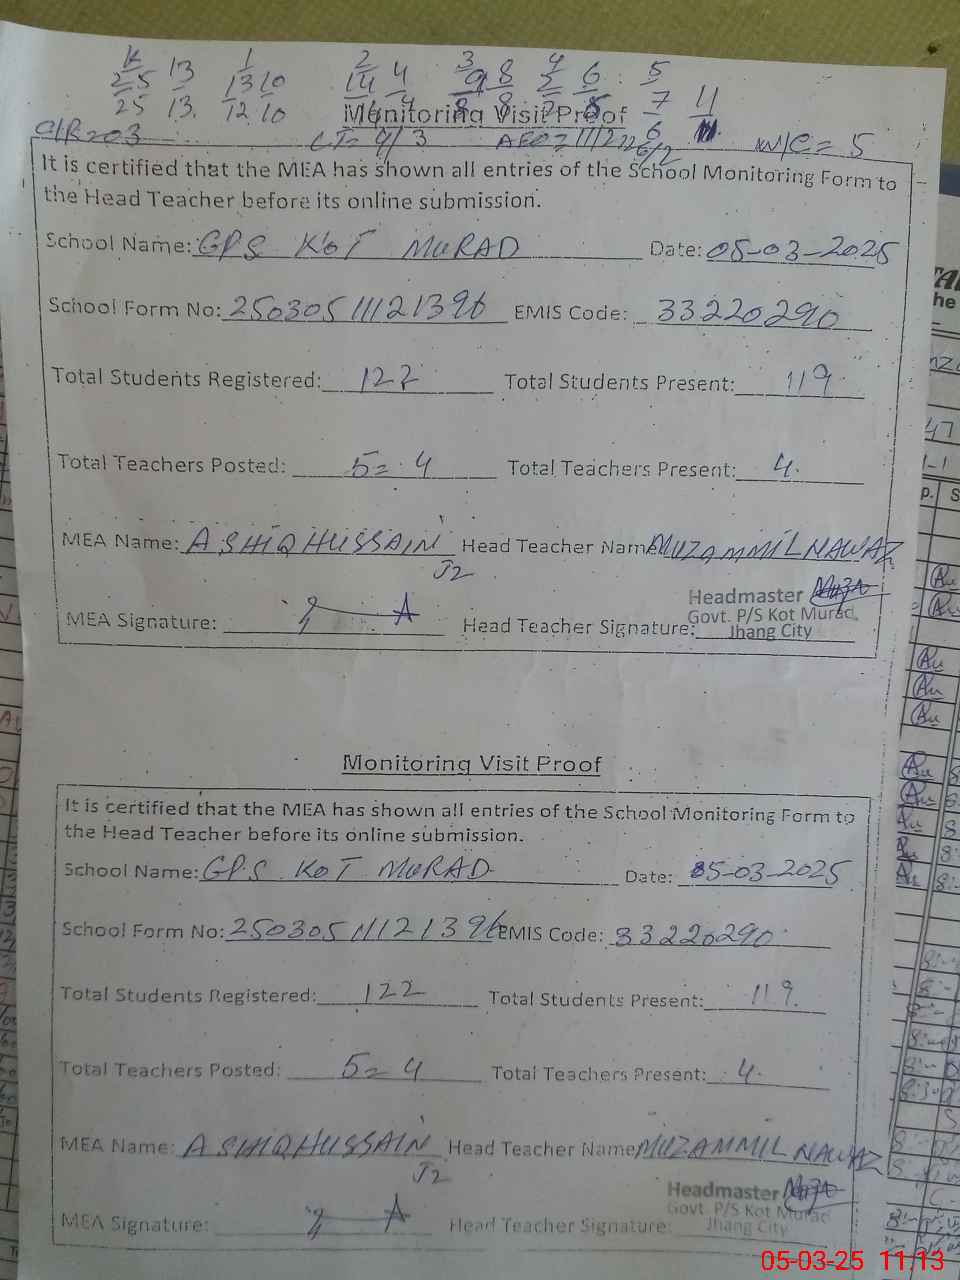 K 13 1 2 4 3 8 4 6 5
25 13 10 14 9 2 7 11
25 13. 12 10 8 6
Monitoring Visit Proof
C/R=03 W/C = 5
It is certified that the MEA has shown all entries of the School Monitoring Form to
the Head Teacher before its online submission.
School Name: GPS KOT MURAD Date: 05-03-2025
School Form No: 25030511121396 EMIS Code: 33220290
Total Students Registered: 122 Total Students Present: 119
Total Teachers Posted: 5= 4 Total Teachers Present: 4.
MEA Name: ASHIQ HUSSAIN Head Teacher Name MUZAMMIL NAWAZ
J2
Headmaster
MEA Signature: Head Teacher Signature: Govt. P/S Kot Murad,
Jhang City
Monitoring Visit Proof
It is certified that the MEA has shown all entries of the School Monitoring Form to
the Head Teacher before its online submission.
School Name: GPS KOT MURAD Date: 05-03-2025
School Form No: 25030511121396 EMIS Code: 33220290
Total Students Registered: 122 Total Students Present: 119
Total Teachers Posted: 5= 4 Total Teachers Present: 4.
MEA Name: ASHIQ HUSSAIN Head Teacher Name MUZAMMIL NAWAZ
J2
Headmaster
MEA Signature: Head Teacher Signature: Govt. P/S Kot Murad
Jhang City
05-03-25 11:13